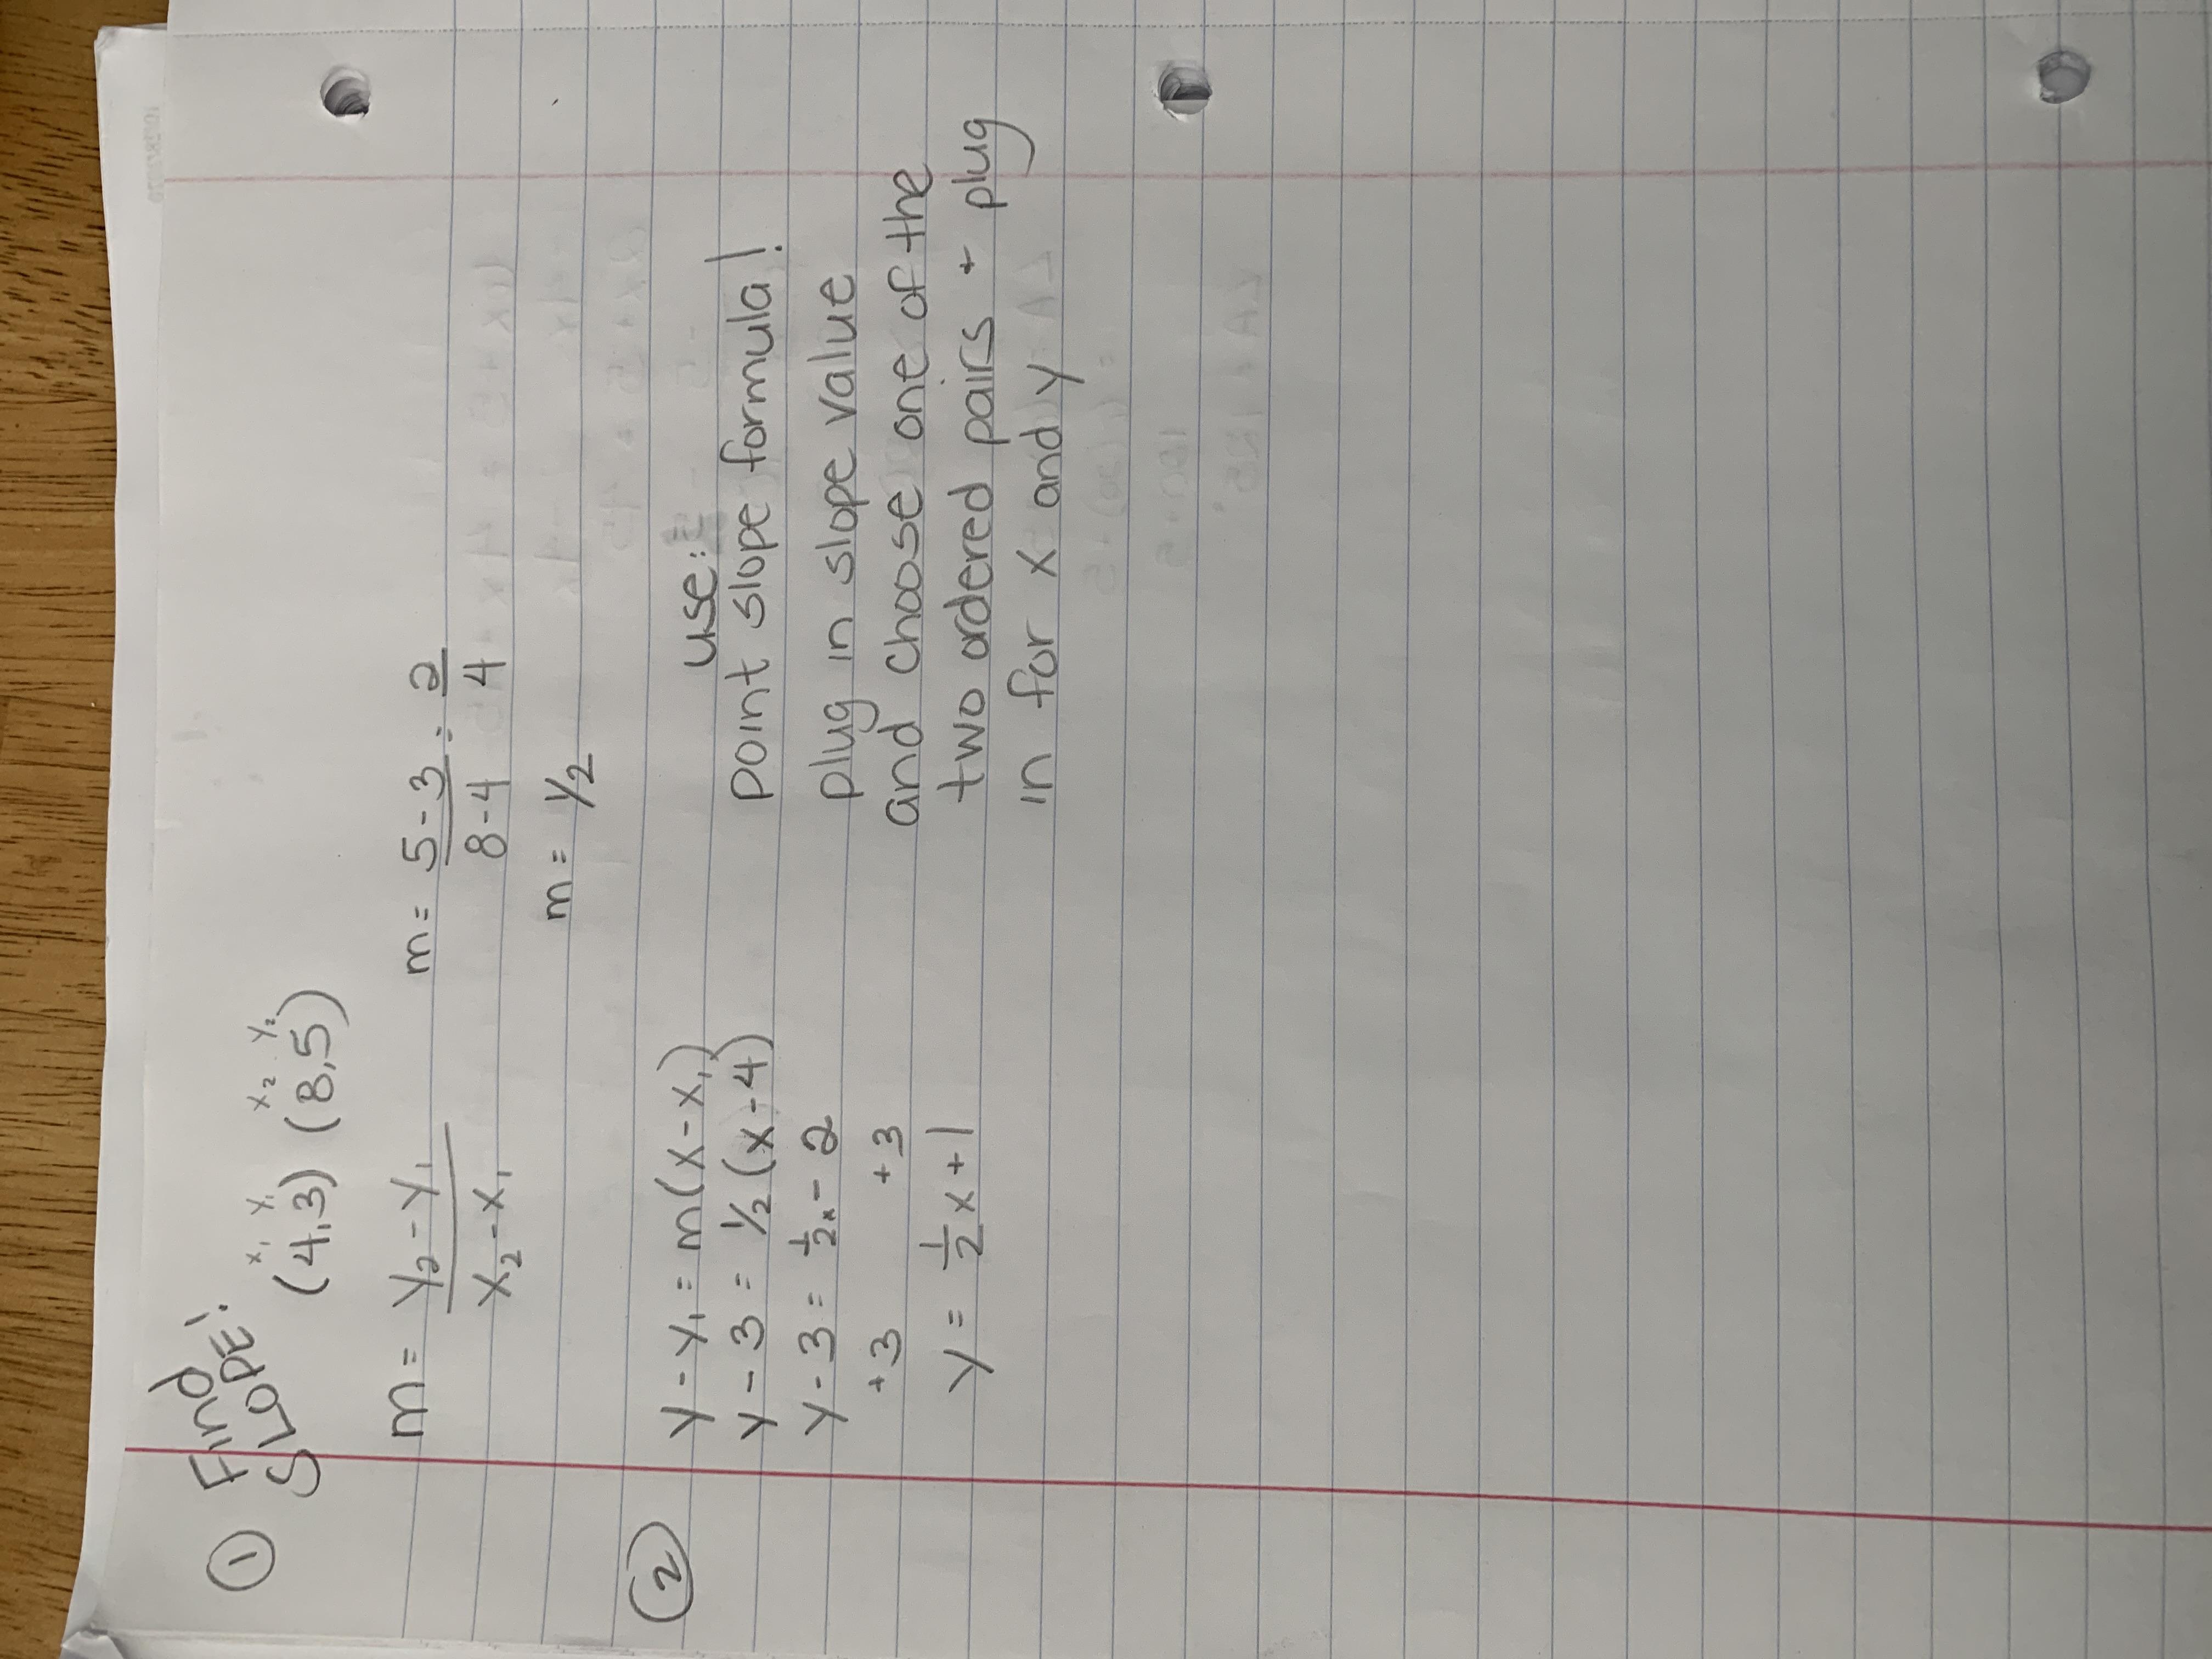 ① Find
SLOPE!
x₁ y₁ x₂ y₂
(4,3) (8,5)
m = y₂ - y₁ / x₂ - x₁ m = 5-3 / 8-4 = 2 / 4
m = 1/2
② y - y₁ = m(x - x₁) use:
y - 3 = 1/2 (x - 4) point slope formula!
y - 3 = 1/2x - 2 plug in slope value
+3 +3 and choose one of the
y = 1/2 x + 1 two ordered pairs + plug
in for x and y